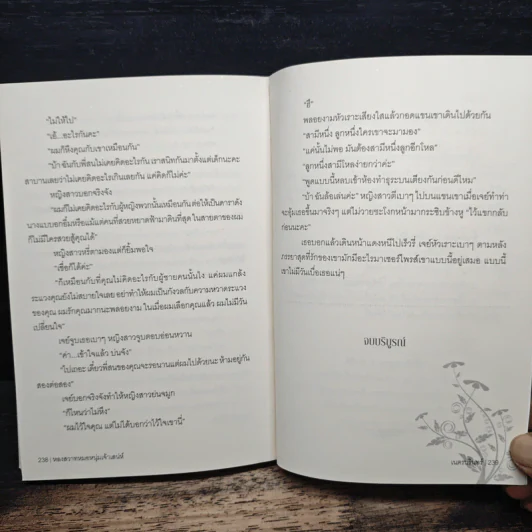 “ไม่ให้ไป”
“เอ้...อะไรกันคะ”
“ผมก็หึงคุณกับเขาเหมือนกัน”
“บ้า ฉันกับพี่สนไม่เคยคิดอะไรกัน เราสนิทกันมาตั้งแต่เด็กนะคะ
สาบานเลยว่าไม่เคยคิดอะไรเกินเลยกัน แค่คิดก็ไม่ค่ะ”
หญิงสาวบอกจริงจัง
“ผมก็ไม่เคยคิดอะไรกับผู้หญิงพวกนั้นเหมือนกัน ต่อให้เป็นดาราดัง
นางแบบอกอึ๋มหรือแม้แต่คนที่สวยหยาดฟ้ามาดินที่สุด ในสายตาของผม
ก็ไม่มีใครสวยสู้คุณได้”
หญิงสาวหรี่ตามองแต่ก็ยิ้มพอใจ
“เชื่อก็ได้ค่ะ”
“ก็เหมือนกับที่คุณไม่คิดอะไรกับผู้ชายคนนั้นไง แต่ผมแกล้ง
ระแวงคุณยังไม่สบายใจเลย อย่าทำให้ผมเป็นกังวลกับความหวาดระแวง
ของคุณ ผมรักคุณมากนะพลอยงาม ในเมื่อผมเลือกคุณแล้ว ผมไม่มีวัน
เปลี่ยนใจ”
เจย์จูบเธอเบาๆ หญิงสาวจูบตอบอ่อนหวาน
“ค่า...เข้าใจแล้ว บ่นจัง”
“ไปเถอะ เดี๋ยวพี่สนของคุณจะรอนานแต่ผมไปด้วยนะ ห้ามอยู่กัน
สองต่อสอง”
เจย์บอกจริงจังทำให้หญิงสาวย่นจมูก
“ก็ไหนว่าไม่หึง”
“ผมไว้ใจคุณ แต่ไม่ได้บอกว่าไว้ใจเขานี่”
238 | หลงสวาทหมอหนุ่มเจ้าเสน่ห์
“ฮึ”
พลอยงามหัวเราะเสียงใสแล้วกอดแขนเขาเดินไปด้วยกัน
“สามีหนึ่ง ลูกหนึ่งใครเขาจะมามอง”
“แค่นั้นไม่พอ มันต้องสามีหนึ่งลูกอีกโหล”
“ลูกหนึ่งสามีโหลง่ายกว่าค่ะ”
“พูดแบบนี้หลบเข้าห้องทำธุระบนเตียงกันก่อนดีไหม”
“บ้า ฉันล้อเล่นค่ะ” หญิงสาวตีเบาๆ ไปบนแขนเขาเมื่อเจย์ทำท่า
จะอุ้มเธอขึ้นมาจริงๆ แต่ไม่วายชะโงกหน้ามากระซิบข้างหู “ไว้แขกกลับ
ก่อนนะคะ”
เธอบอกแล้วเดินหน้าแดงหนีไปเร็วรี่ เจย์หัวเราะเบาๆ ตามหลัง
ภรรยาสุดที่รักของเขามักมีอะไรมาเซอร์ไพรส์เขาแบบนี้อยู่เสมอ แบบนี้
เขาไม่มีวันเบื่อเธอแน่ๆ
จบบริบูรณ์
239